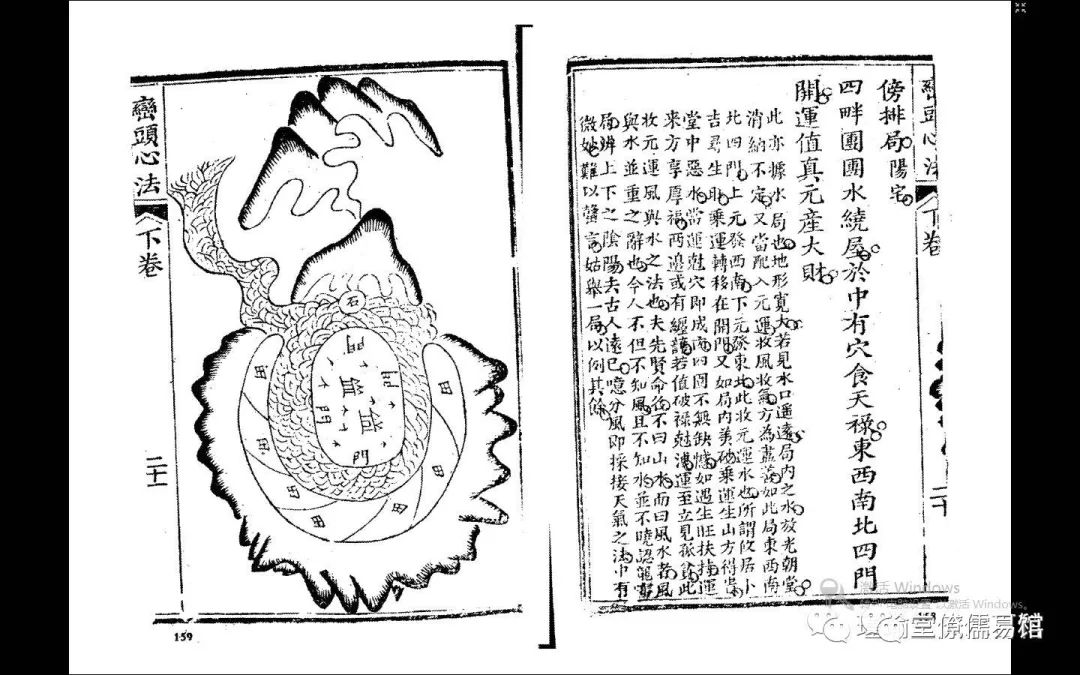 巒頭心法
下卷
二十
傍排局 陽宅
四畔團團水繞屋於中有穴食天祿東西南北四門
開運值真元產大財
此亦據水局也地形寬大若見水口遥遠局內之水放光朝堂
消納不定又當配入元運收風收氣方為盡善如此局東西南
北四門上元發西南下元發東北此收元運水也所謂攸居卜
吉尋生助乘運轉移在開門又如局內美砂乘運生山方得
堂中惡水當運尅穴即成凶四圍不無缺憾如遇生旺扶持運
來方享厚福兩邊或有纏護若值破祿尅凶運至立見孤貧此
收元運風與水之法也夫先賢命名不曰山水而曰風水者風
與水並重之辭也今人不但不知風且不知水並不曉認龍
局辨上下之陰陽夫古人遠已噫分風即採接天氣之法中有
微妙難以聲言姑舉一局以例其餘
158
巒頭心法
下卷
二十一
石
門
田
門
門
田
田
田
田
田
田
159
激活 Windows
以激活 Windows。
堂僚儒易館